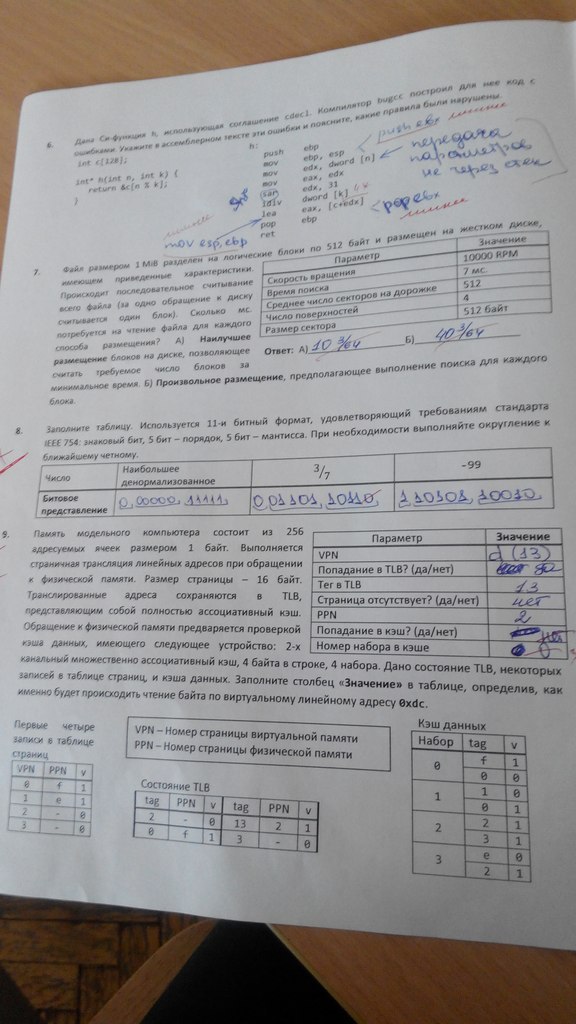 6. Дана Си-функция h, использующая соглашение cdecl. Компилятор bugcc построил для нее код с
ошибками. Укажите в ассемблерном тексте эти ошибки и поясните, какие правила были нарушены.
int c[128];
int* h(int n, int k) {
return &c[n % k];
}
h:
push ebp
mov ebp, esp
mov edx, dword [n]
mov eax, edx
sar edx, 31
idiv dword [k]
lea eax, [c+edx]
pop ebp
ret
push ebx
лишнее
передача
параметров
не через стек
pop ebx
лишнее
mov esp, ebp
7. Файл размером 1 MiB разделен на логические блоки по 512 байт и размещен на жестком диске,
имеющем приведенные характеристики.
Происходит последовательное считывание
всего файла (за одно обращение к диску
считывается один блок). Сколько мс.
потребуется на чтение файла для каждого
способа размещения? А) Наилучшее
размещение блоков на диске, позволяющее
считать требуемое число блоков за
минимальное время. Б) Произвольное размещение, предполагающее выполнение поиска для каждого
блока.
Параметр Значение
Скорость вращения 10000 RPM
Время поиска 7 мс.
Среднее число секторов на дорожке 512
Число поверхностей 4
Размер сектора 512 байт
Ответ: А) 10 3/64 Б) 40 3/64
8. Заполните таблицу. Используется 11-и битный формат, удовлетворяющий требованиям стандарта
IEEE 754: знаковый бит, 5 бит – порядок, 5 бит – мантисса. При необходимости выполняйте округление к
ближайшему четному.
Число Наибольшее денормализованное 3/7 -99
Битовое представление 0,00000,11111, 0,01101,10110, 1,10101,10010,
9. Память модельного компьютера состоит из 256
адресуемых ячеек размером 1 байт. Выполняется
страничная трансляция линейных адресов при обращении
к физической памяти. Размер страницы – 16 байт.
Транслированные адреса сохраняются в TLB,
представляющим собой полностью ассоциативный кэш.
Обращение к физической памяти предваряется проверкой
кэша данных, имеющего следующее устройство: 2-х
канальный множественно ассоциативный кэш, 4 байта в строке, 4 набора. Дано состояние TLB, некоторых
записей в таблице страниц, и кэша данных. Заполните столбец «Значение» в таблице, определив, как
именно будет происходить чтение байта по виртуальному линейному адресу 0xdc.
Параметр Значение
VPN d (13)
Попадание в TLB? (да/нет) да
Тег в TLB 13
Страница отсутствует? (да/нет) нет
PPN 2
Попадание в кэш? (да/нет) нет
Номер набора в кэше 0
Первые четыре
записи в таблице
страниц
VPN PPN v
0 f 1
1 e 1
2 - 0
3 - 0
VPN – Номер страницы виртуальной памяти
PPN – Номер страницы физической памяти
Состояние TLB
tag PPN v tag PPN v
2 - 0 13 2 1
0 f 1 3 - 0
Кэш данных
Набор tag v
0 f 1
0 0
1 1 0
0 1
2 2 1
3 1
3 e 0
2 1